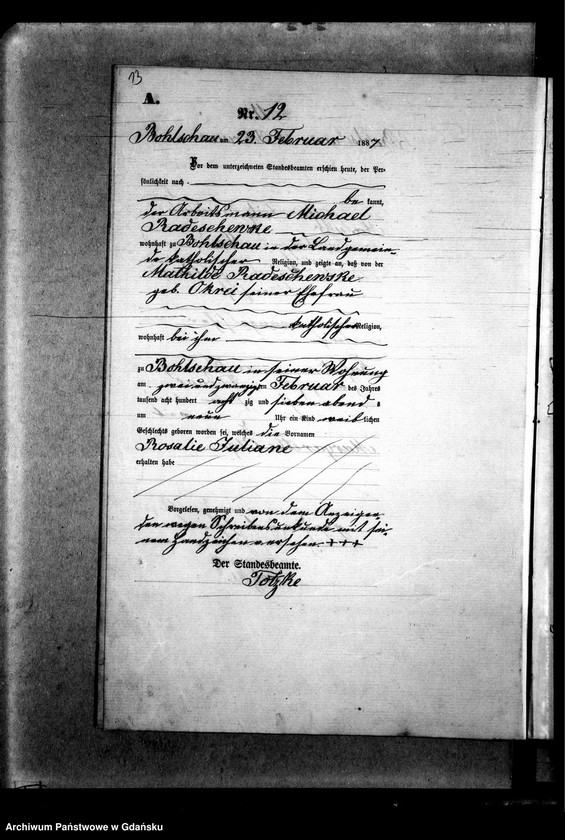 13
A.
Nr. 12
Bohlschau am 23. Februar 1887
Vor dem unterzeichneten Standesbeamten erschien heute, der Per-
sönlichkeit nach
be kannt,
der Arbeitsmann Michael
Radeschewske
wohnhaft zu Bohlschau in der Landgemein-
de katholischer Religion, und zeigte an, daß von der
Mathilde Radeschewske
geb. Okrei seiner Ehefrau
katholischer Religion,
wohnhaft bei ihm
zu Bohlschau in seiner Wohnung
am zweiundzwanzigsten Februar des Jahres
tausend acht hundert acht zig und sieben abends
um neun Uhr ein Kind weib lichen
Geschlechts geboren worden sei, welches die Vornamen
Rosalie Juliane
erhalten habe
Vorgelesen, genehmigt und von dem Anzeigen
den wegen Schreibensunkunde mit sei-
nem Handzeichen versehen. + + +
Der Standesbeamte.
Totzke
Archiwum Państwowe w Gdańsku